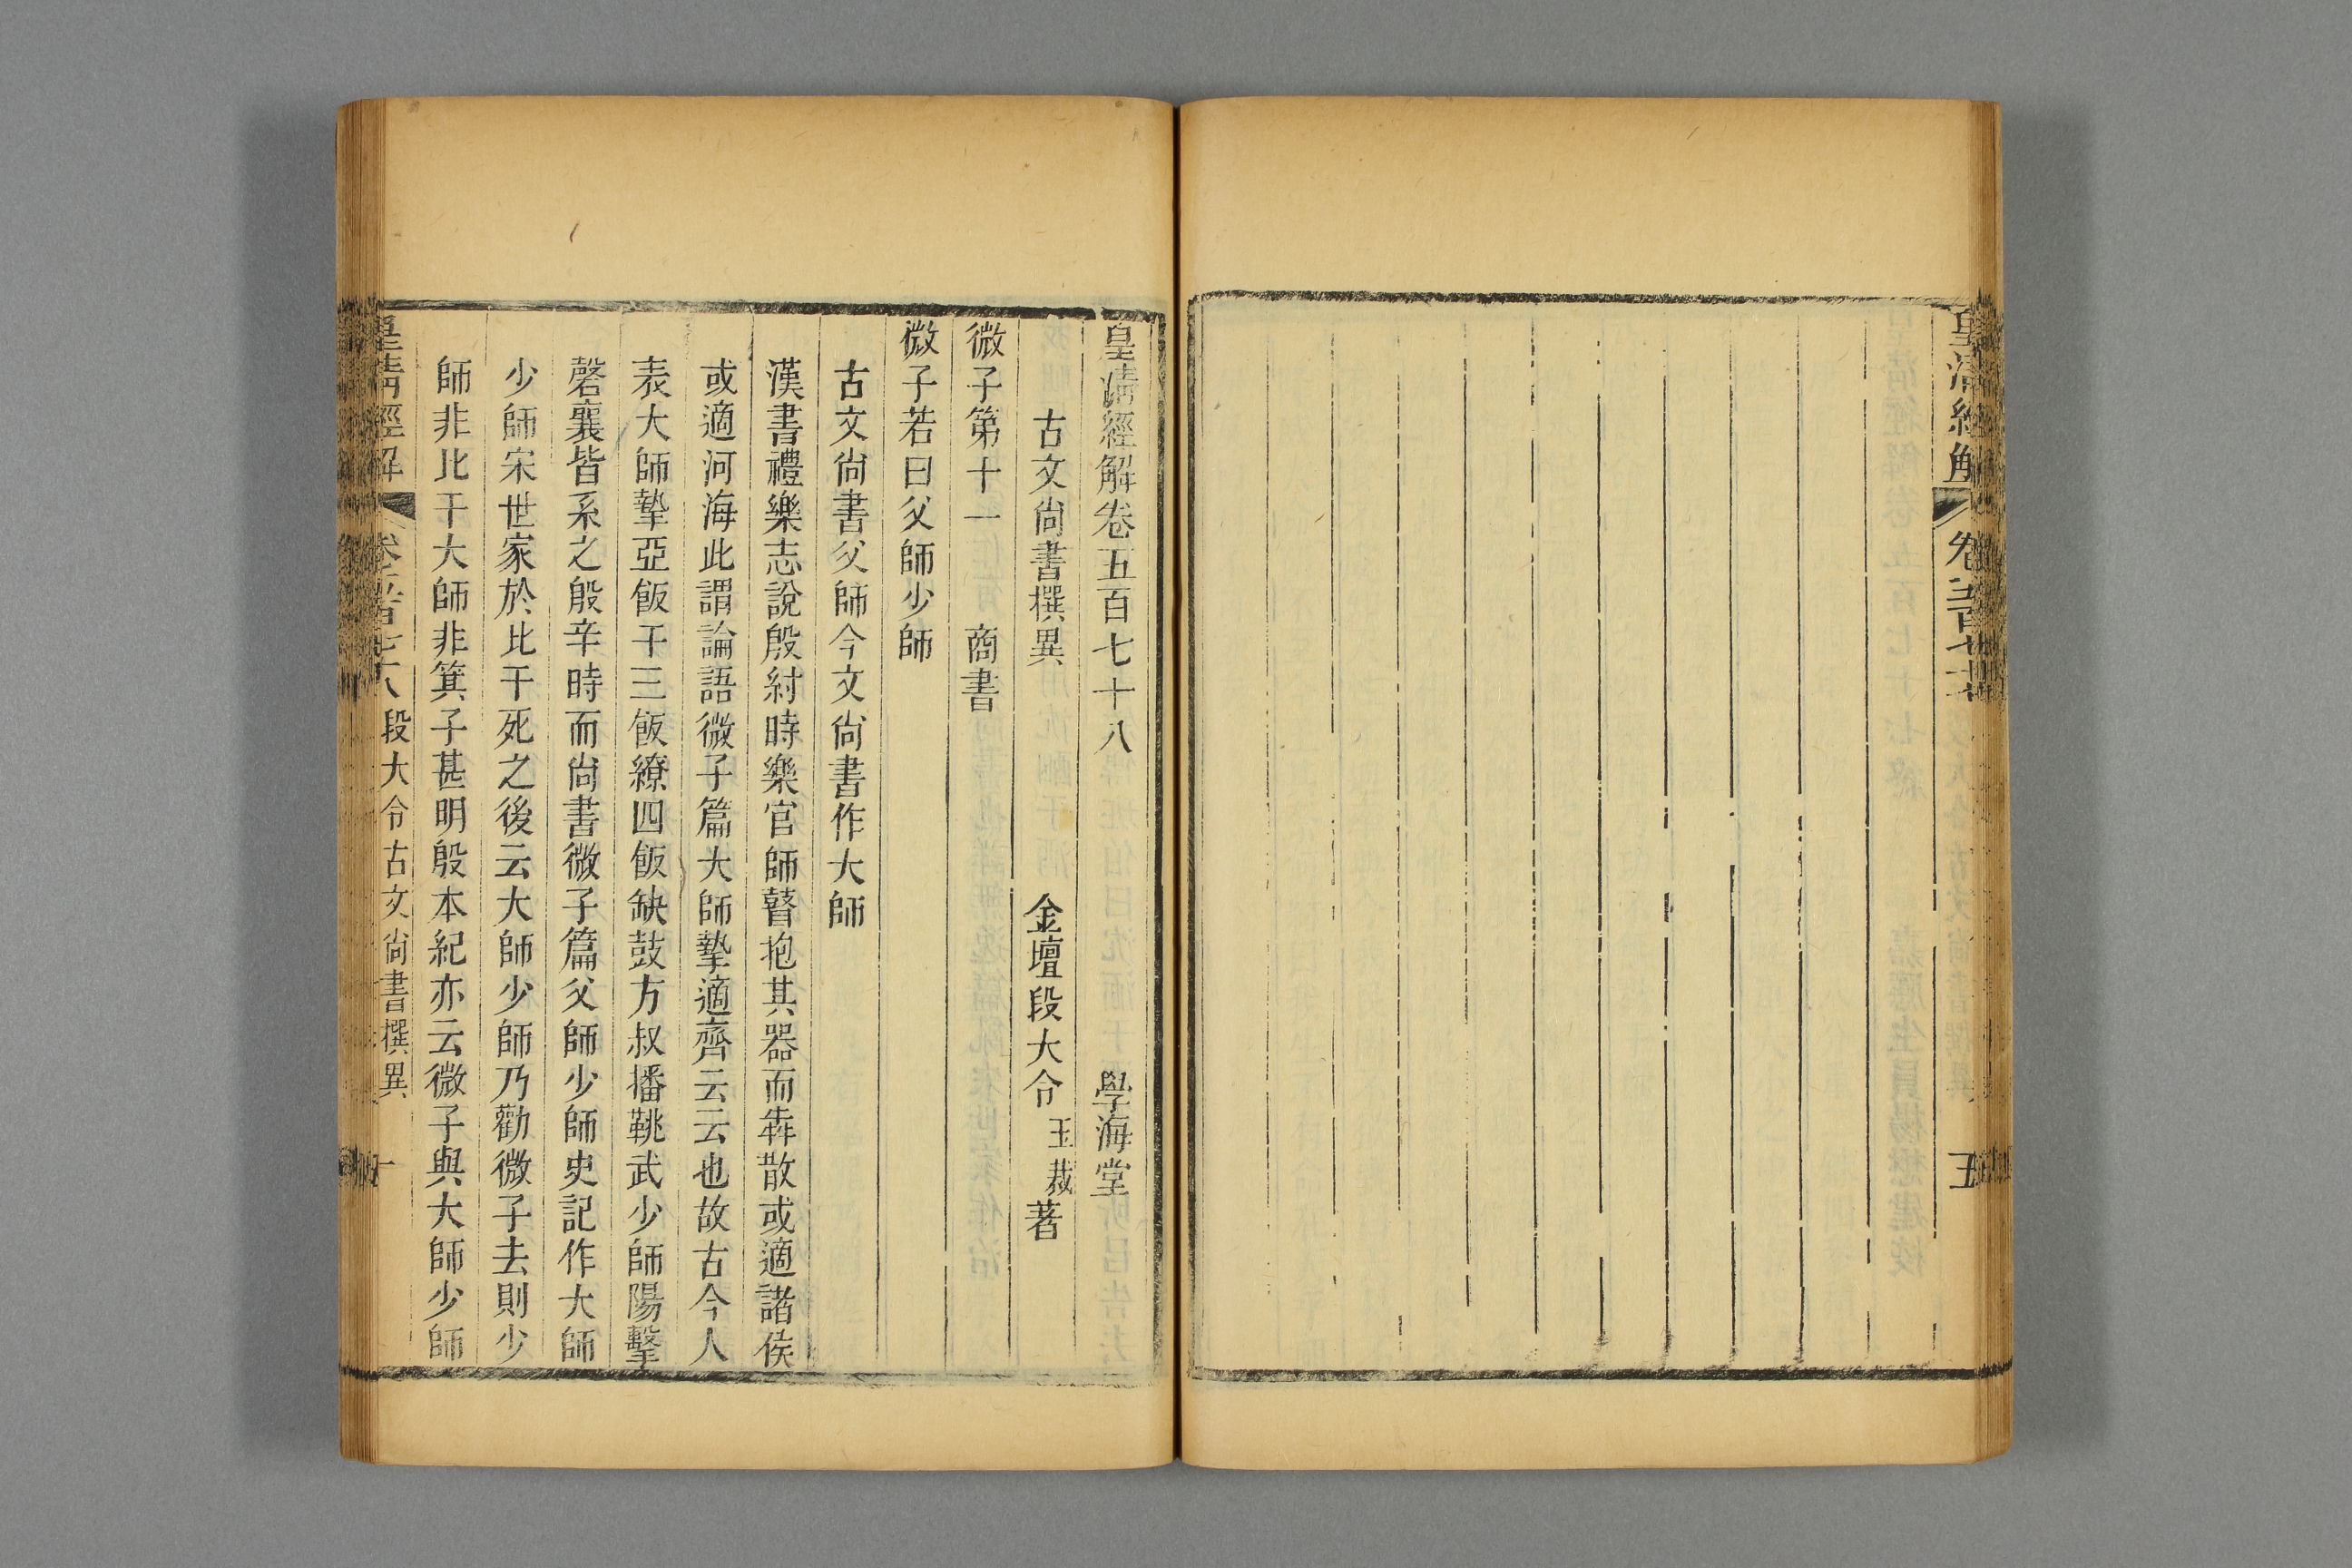 皇清經解
卷五百七十七
五
皇清經解卷五百七十八
學海堂
古文尙書撰異
金壇段大令玉裁著
微子第十一 商書
微子若曰父師少師
古文尙書父師今文尙書作大師
漢書禮樂志說殷紂時樂官師瞽抱其器而犇散或適諸侯
或適河海此謂論語微子篇大師摯適齊云云也故古今人
表大師摯亞飯干三飯繚四飯缺鼓方叔播鞉武少師陽擊
磬襄皆系之殷辛時而尙書微子篇父師少師史記作大師
少師宋世家於比干死之後云大師少師乃勸微子去則少
師非比干大師非箕子甚明殷本紀亦云微子與大師少師
皇清經解
卷五百七十八
段大令古文尙書撰異
一